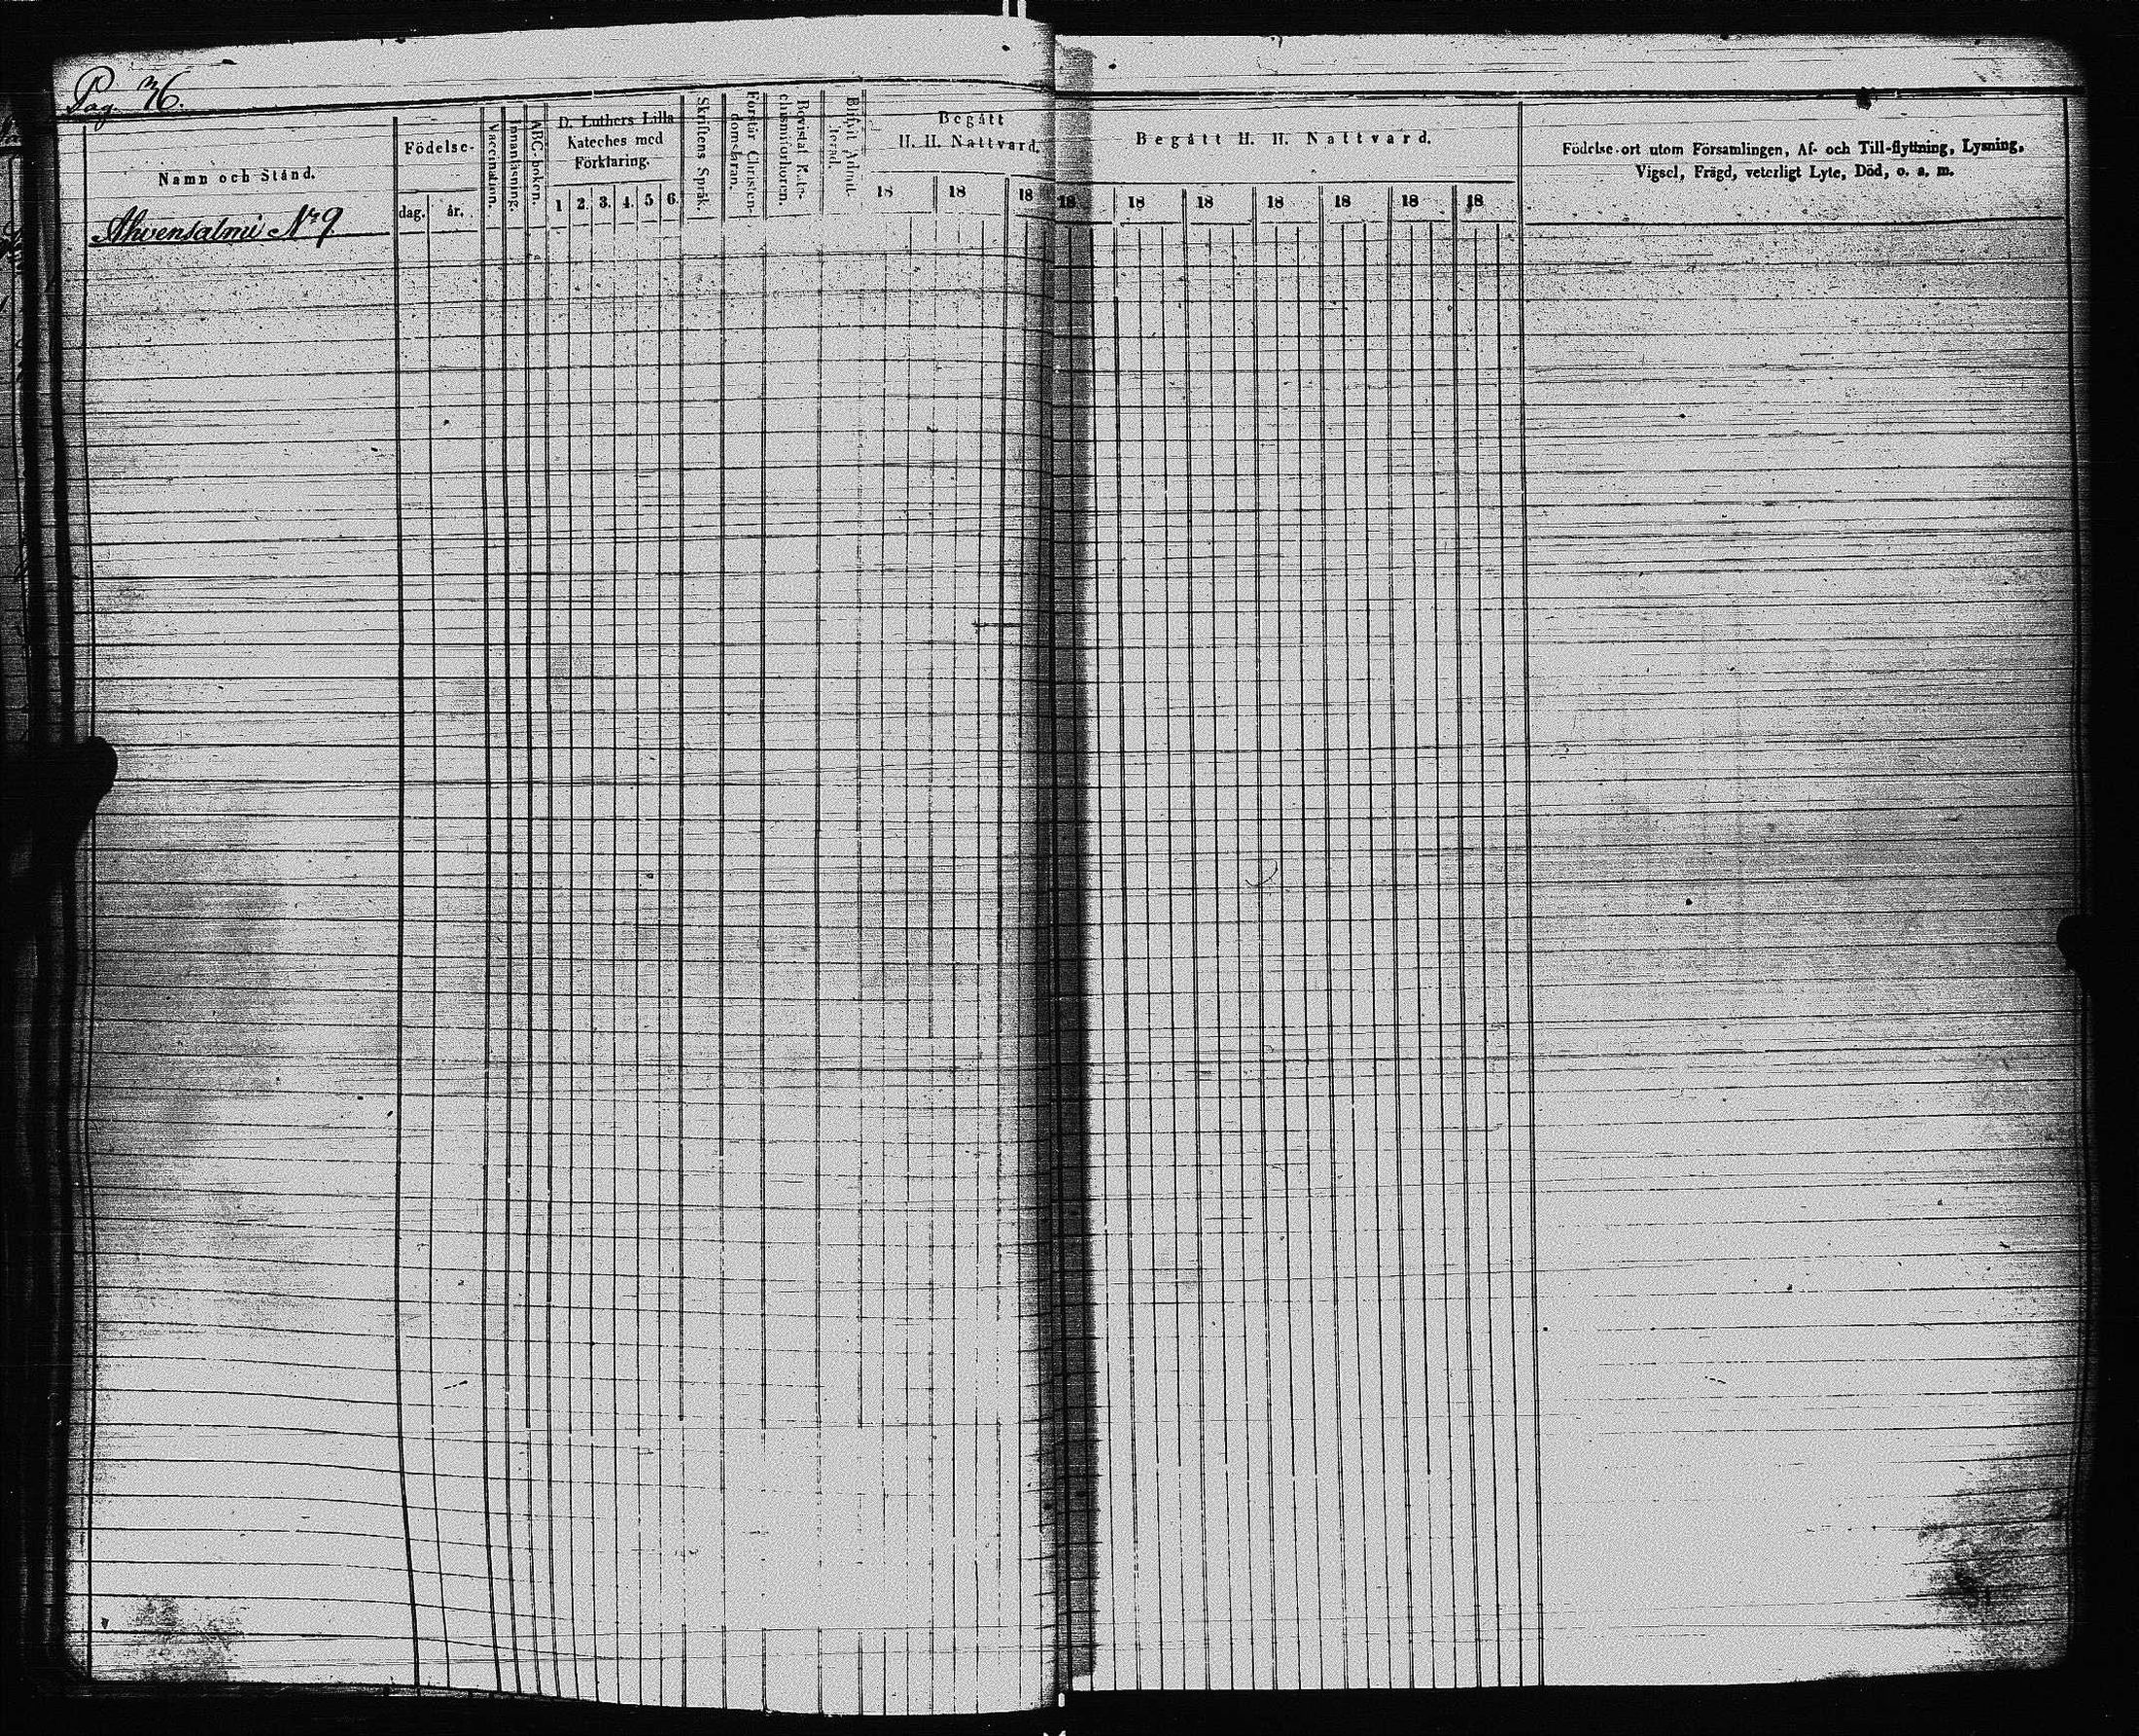 Pag. 36.
Namn och Stånd.
Födelse-
dag.
år.
Vaccination.
Innanläsning.
ABC-boken.
D. Luthers Lilla
Kateches med
Förklaring.
1 2. 3. 4. 5 6.
Skriftens Språk.
Förstår Christen-
domsläran.
Bevistat Kate-
chismiförhören.
Blifvit Admit-
terad.
Begått
H. H. Nattvard.
18 18 18
Begått H. H. Nattvard.
18 18 18 18 18 18 18
Födelse-ort utom Församlingen, Af- och Till-flyttning, Lysning,
Vigsel, Frägd, veterligt Lyte, Död, o. s. m.
Ahvensalmi No 9